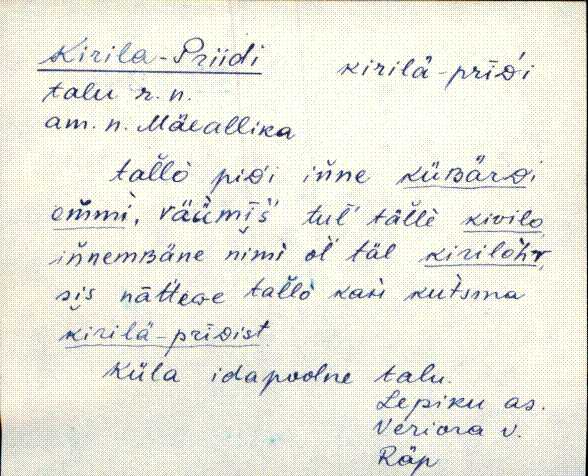 Kirila-Priidi kirilä-prīᴅ́i
talu r. n.
am. n. Mäeallika
tall̆ò piᴅi in̆ne küʙärᴅi
em̆mì, väümīš tuľ täl̆lè kivilo
in̆nemʙäne nimì oľ täl kirilòhv,
sis nät̆tewe tal̆lò kaśi kut̀sma
kirilä-prīᴅist.
Küla idapoolne talu.
Lepiku as.
Veriora v.
Räp